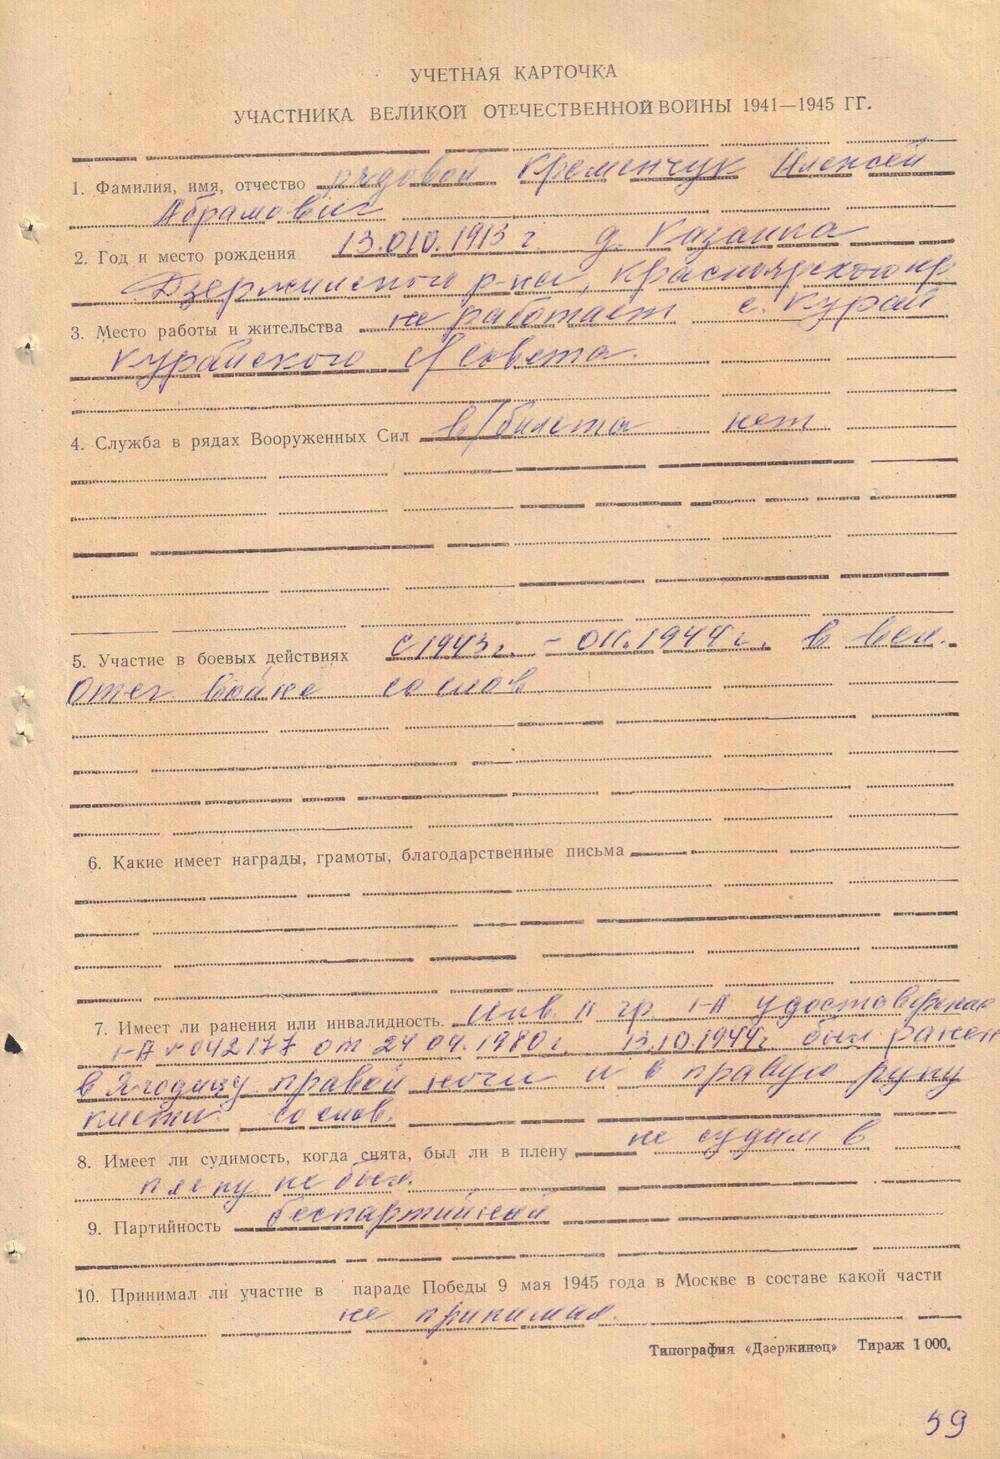 УЧЕТНАЯ КАРТОЧКА
УЧАСТНИКА ВЕЛИКОЙ ОТЕЧЕСТВЕННОЙ ВОЙНЫ 1941—1945 ГГ.
1. Фамилия, имя, отчество рядовой Кременчук Алексей
Абрамович
2. Год и место рождения 13.010.1913 г. д. Казанка
Дзержинского р-на, Красноярского кр
3. Место работы и жительства не работает с. Курай
Курайского с/совета.
4. Служба в рядах Вооруженных Сил в/билета нет
5. Участие в боевых действиях с 1943 г. – 011.1944 г. в вел.
Отеч войне со слов
6. Какие имеет награды, грамоты, благодарственные письма
7. Имеет ли ранения или инвалидность. Инв. II гр. 1-А удостоверение
1-А № 042177 от 24 04.1980 г. 13.10.1944 г был ранен
в ягодицу правой ночи и в правую руку
кисти со слов.
8. Имеет ли судимость, когда снята, был ли в плену не судим в
плену не был.
9. Партийность беспартийный
10. Принимал ли участие в параде Победы 9 мая 1945 года в Москве в составе какой части
не принимал.
Типография «Дзержинец» Тираж 1 000.
59